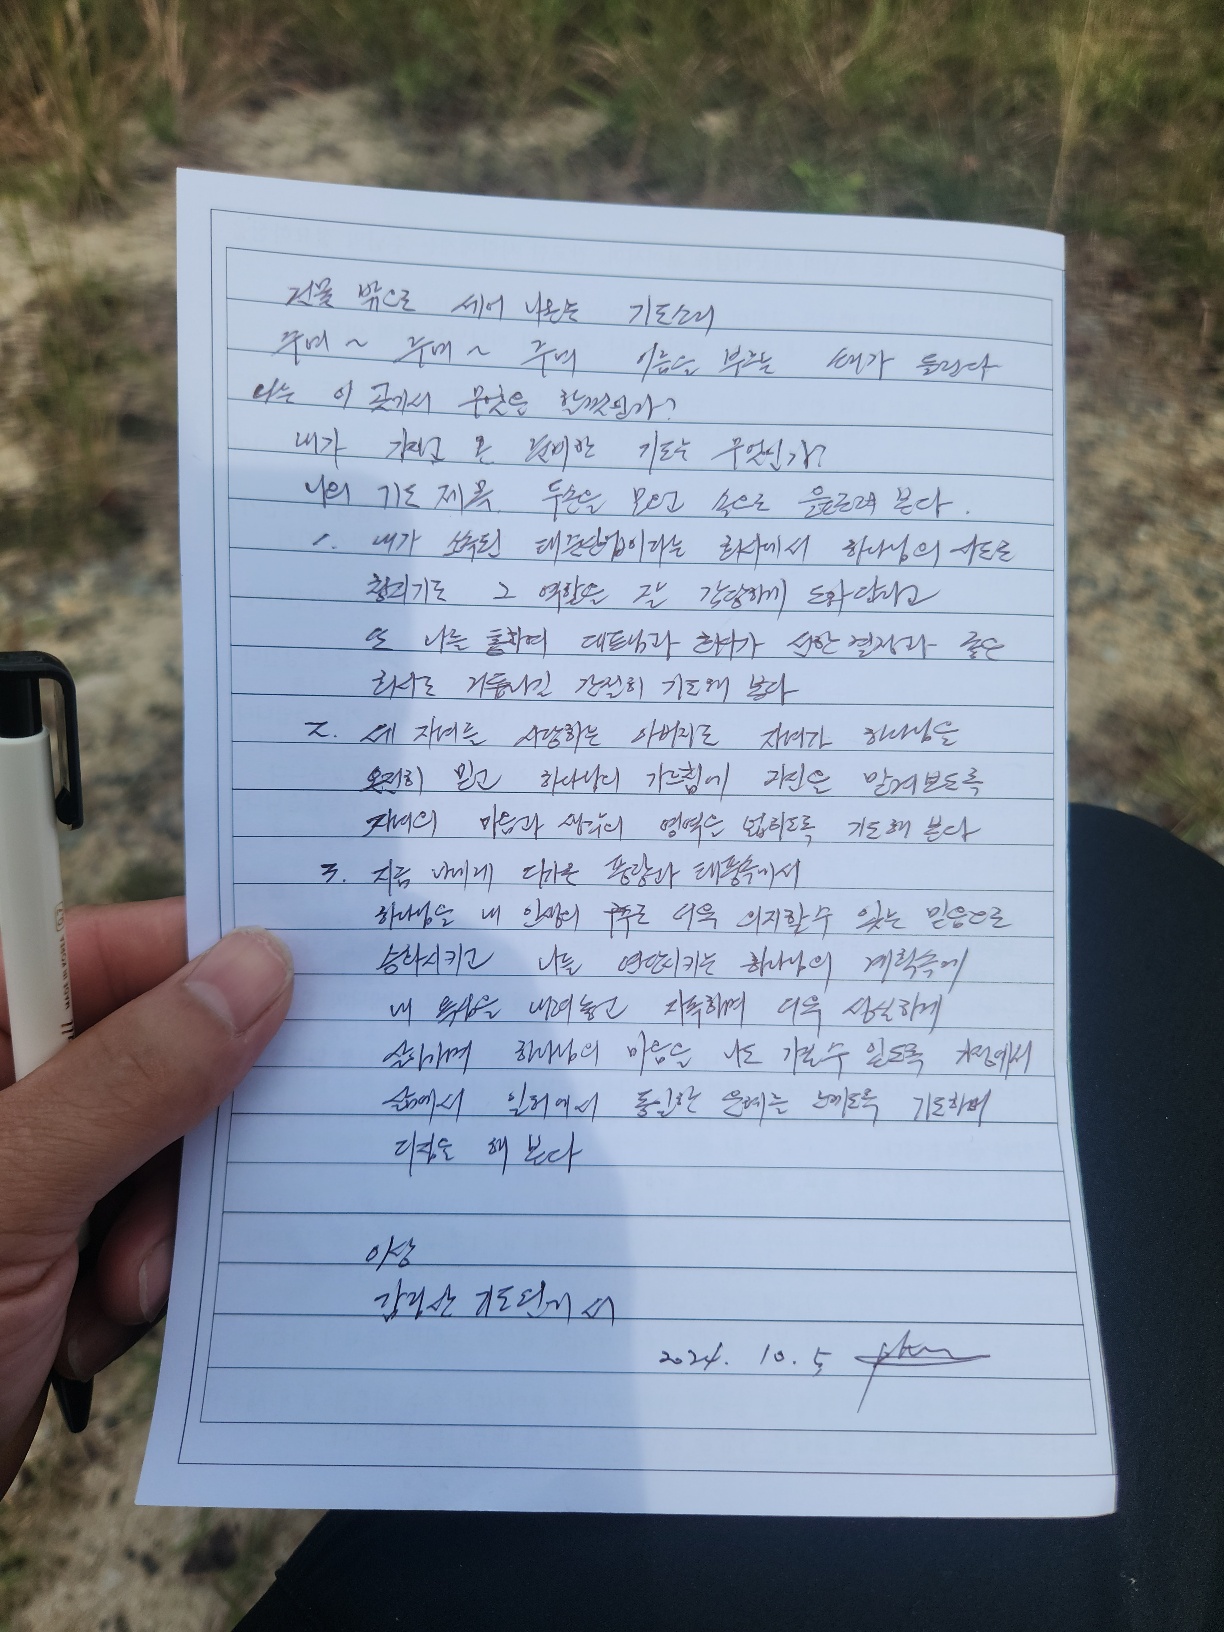 건물 밖으로 세어 나온는 기도소리
주여 ~ 주여 ~ 주여 이름을 부르는 소리가 들린다
나는 이 곳에서 무엇을 할것인가?
내가 가지고 온 준비한 기도는 무엇인가?
나의 기도 제목. 두손을 모으고 속으로 읊조려 본다.
1. 내가 소속된 태근산업이라는 회사에서 하나님의 사도로
그 역할을 잘 감당하게 도와달라고
또 나를 통하여 대표님과 회사가 선한 결정과 좋은
회사로 거듭나길 간절히 기도해 본다
2. 세 자녀를 사랑하는 아버지로 자녀가 하나님을
온전히 믿고 하나님의 가르침에 자신을 맡겨보도록
자녀의 마음과 생각의 영역을 넓히도록 기도해 본다
3. 지금 나에게 다가온 풍랑과 태풍속에서
하나님을 내 인생의 주로 더욱 의지할수 있는 믿음으로
승화시키고 나를 연단시키는 하나님의 계획속에
내 욕심을 내려놓고 자족하며 더욱 성실하게
살아가며 하나님의 마음을 나도 가질수 있도록 가정에서
삶에서 일터에서 동일한 은혜를 느끼도록 기도하며
다짐을 해 본다
이상
감림산 기도원에서
2024. 10. 5